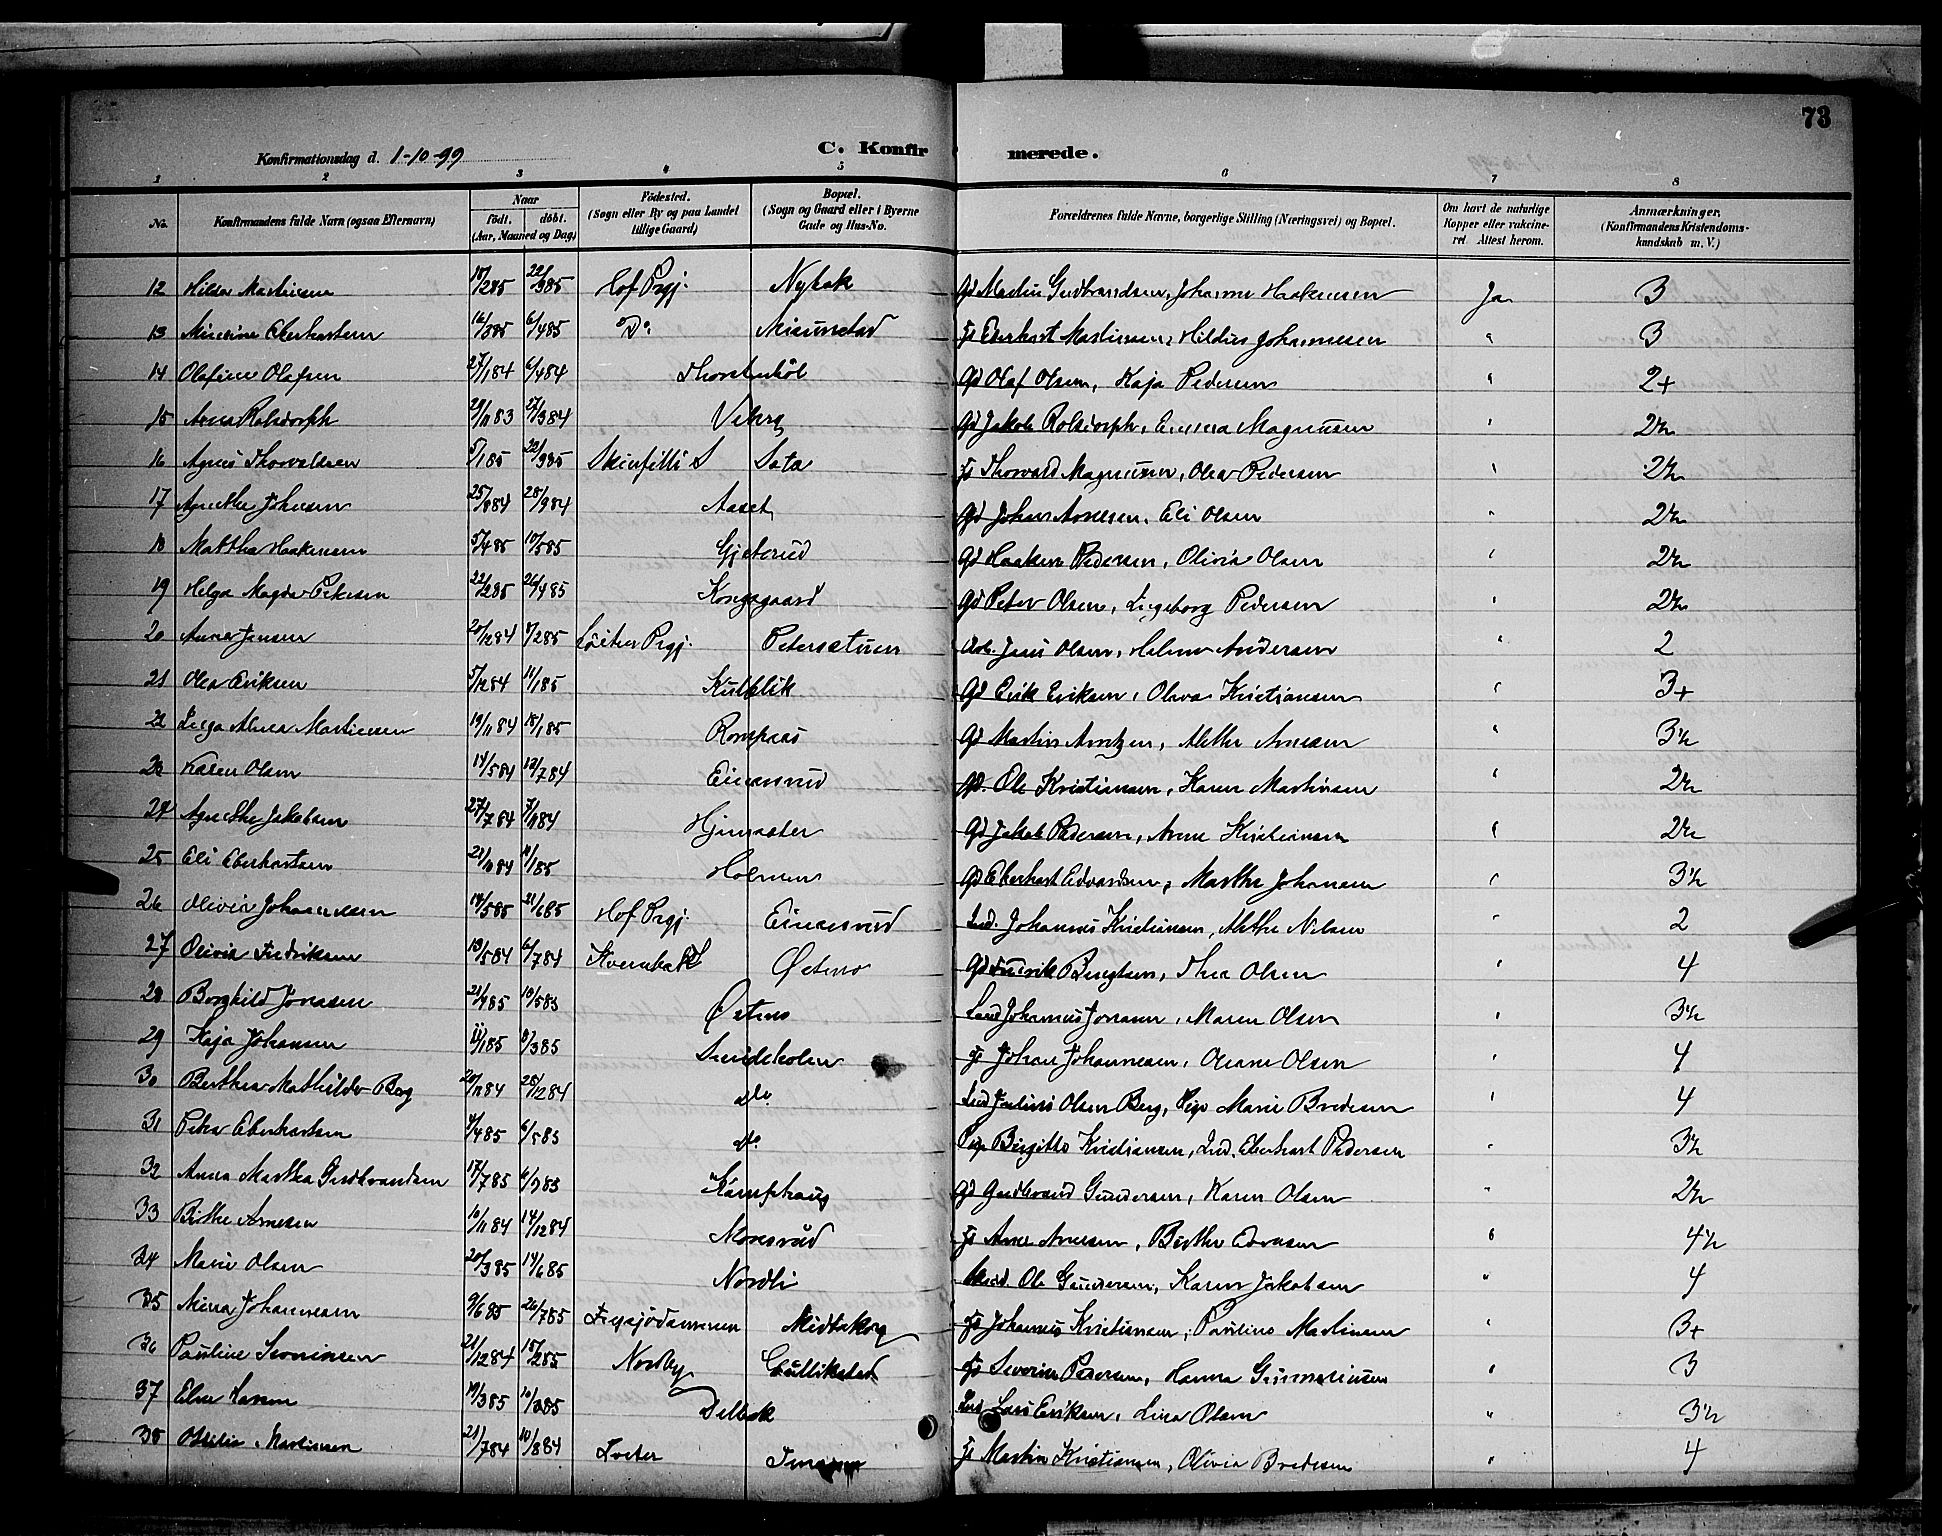 73
Konfirmationsdag d. 1-10-99
C. Konfirmerede.
1 2 3 4 5 6 7 8
No. Konfirmandens fulde Navn (ogsaa Efternavn) Naar födt. döbt. (Aar, Maaned og Dag) Födested. (Sogn eller By og paa Landet tillige Gaard) Bopæl. (Sogn og Gaard eller i Byerne Gade og Hus-No. Forældrenes fulde Navne, borgerlige Stilling (Næringsvei) og Bopæl. Om havt de naturlige Kopper eller vakcineret. Attest herom. Anmærkninger. (Konfirmandens Kristendomskundskab m. V.)
12 Hilda Martinsen 22/385 Hof Prgj. Nybak Gd Martin Gudbrandsen, Johanne Haakensen Ja 3
13 Eberhartsen 16/385 6/485 Do Gd Eberhart Martinsen, Johannesen " 3
14 Olafine Olafsen 27/184 6/484 Gd Olaf Olsen, Kaja Pedersen " 2+
15 Anna Rolsdorph 29/1183 27/384 Viberg Gd Jakob Rolsdorph, Emma Magnussen " 2½
16 Agnes Thorvaldsen 5/185 22/385 Sæta Fs Thorvald Magnussen, Olea Pedersen " 2½
17 Agnethe Johnsen 25/884 28/984 Aaset Gd Johan Arnesen, Eli Olsen " 2½
18 Martha Haakensen 5/485 10/585 Gjeterud Gd Haaken Pedersen, Olivia Olsen " 2½
19 Helga Magda Petersen 22/285 26/485 Kongsgaard Gd Peter Olsen, Ingeborg Pedersen " 2½
20 Anna Jensen 20/1284 Löiten Prgj. Peterstuen Jens Olsen, Helene Andersen " 2
21 Olea Eriksen 5/1284 11/185 Kulblik Gd Erik Eriksen, Olava Kristiansen " 3+
22 Inga Alma Martinsen 19/1184 18/185 Romsaas Gd Martin Arntzen, Alethe Arnesen " 3½
23 Karen Olsen 14/584 13/784 Einarsrud Gd. Ole Kristiansen, Karen Martinsen " 2½
24 Agnethe Jakobsen 27/784 Gd Jakob Pedersen, Anne Kristiansen " 2½
25 Eli Eberhartsen Holmen Gd Eberhart Edvardsen, Marthe Johansen " 3½
26 Olivia Johannesen 14/585 21/685 Hof Prgj. Einarsrud Ind. Johannes Kristiansen, Alethe Nilsen " 2
27 Olivia Fredriksen 13/584 6/784 Østmo Gd Fredrik Bengtsen, Thea Olsen " 4
28 Borghild Jonasen 21/485 10/585 Østmo Ind Johannes Jonasen, Maren Olsen " 3½
29 Kaja Johansen 11/185 8/385 Sandholen Fs Johan Johannesen, Oleane Olsen " 4
30 Berthea Mathilde Berg 20/1184 28/1284 do Ind Julius Olsen Berg, Pige Marie Bredesen " 4
31 Petra Eberhartsen 4/485 6/585 do. Pige Birgitte Kristiansen, Ind. Eberhart Pedersen " 3½
32 Anna Martha Gudbrandsen 17/785 Kamphaug Gd Gudbrand Gundersen, Karen Olsen " 2½
33 Birthe Arnesen 10/1184 14/1284 Monsrud Fs Arne Arnesen, Birthe " 4½
34 Marie Olsen 20/385 14/685 Nordli Ind Ole Gundersen, Karen Jakobsen " 4
35 Mina Johannesen 9/685 26/785 Midtskog Fs Johannes Kristiansen, Pauline Martinsen " 3+
36 Pauline Severinsen 21/1284 15/285 Nordby Gullikstad Fs Severin Pedersen, Hanna Gunneriusen " 3
37 Elna Larsen 19/385 Delbak Ind Lars Eriksen, Lina Olsen " 3½
38 Othilie Martinsen 21/784 10/884 Tveter Fs Martin Kristiansen, Olivia Bredesen " 4